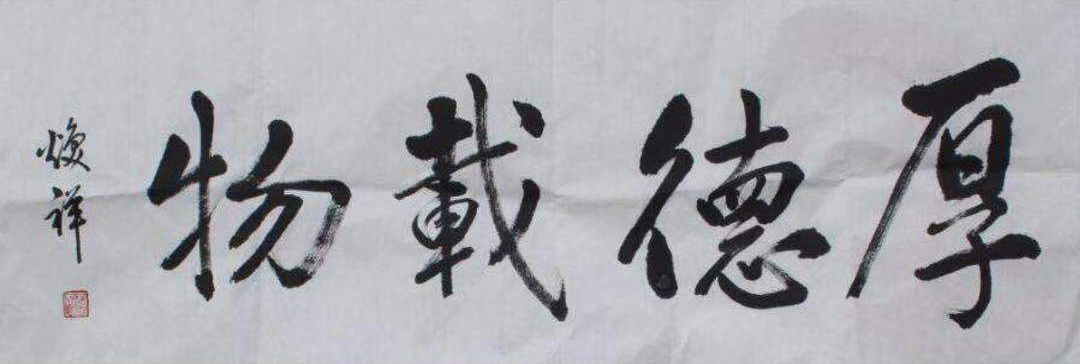 厚德載物
焕祥